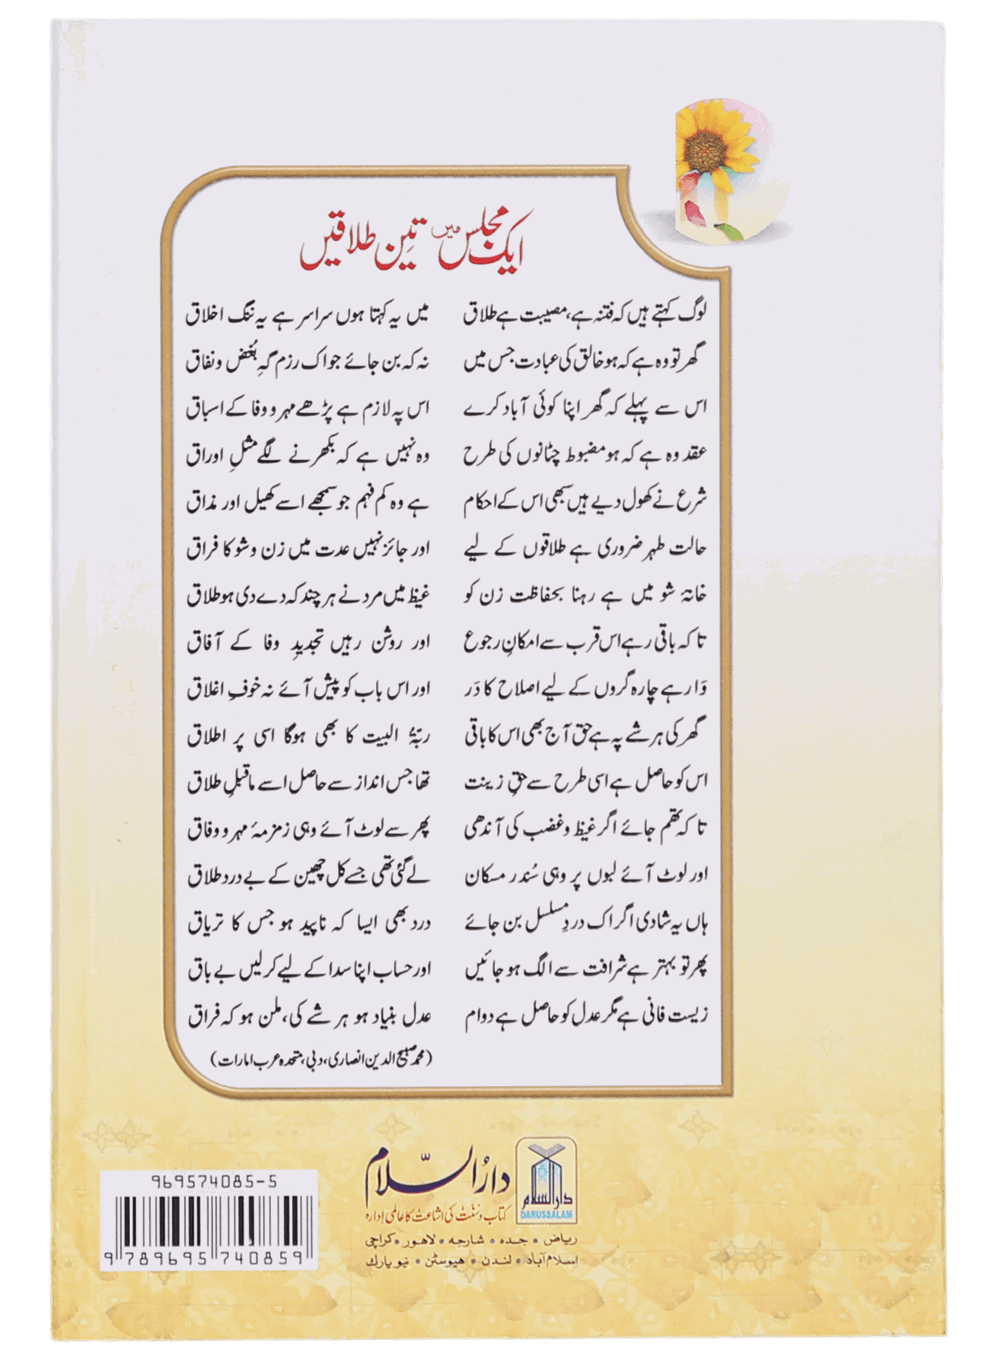 ایک مجلس میں تین طلاقیں
لوگ کہتے ہیں کہ فتنہ ہے، مصیبت ہے طلاق میں یہ کہتا ہوں سراسر ہے یہ ننگ اخلاق
گھر تو وہ ہے کہ ہو خالق کی عبادت جس میں نہ کہ بن جائے جو اک رزم گہِ بُغض و نفاق
اس سے پہلے کہ گھر اپنا کوئی آباد کرے اس پہ لازم ہے پڑھے مہر و وفا کے اسباق
عقد وہ ہے کہ ہو مضبوط چٹانوں کی طرح وہ نہیں ہے کہ بکھرنے لگے مثلِ اوراق
شرع نے کھول دیے ہیں سبھی اس کے احکام ہے وہ کم فہم جو سمجھے اسے کھیل اور مذاق
حالت طہر ضروری ہے طلاقوں کے لیے اور جائز نہیں عدت میں زن و شو کا فراق
خانۂ شو میں ہے رہنا بحفاظت زن کو غیظ میں مرد نے ہر چند کہ دے دی ہو طلاق
تا کہ باقی رہے اس قرب سے امکانِ رجوع اور روشن رہیں تجدیدِ وفا کے آفاق
وَا رہے چارہ گروں کے لیے اصلاح کا دَر اور اس باب کو پیش آئے نہ خوفِ اغلاق
گھر کی ہر شے پہ ہے حق آج بھی اس کا باقی ربّۃُ البیت کا بھی ہوگا اسی پر اطلاق
اس کو حاصل ہے اسی طرح سے حقِ زینت تھا جس انداز سے حاصل اسے ماقبلِ طلاق
تا کہ تھم جائے اگر غیظ و غضب کی آندھی پھر سے لوٹ آئے وہی زمزمۂ مہر و وفاق
اور لوٹ آئے لبوں پر وہی سُندر مسکان لے گئی تھی جسے کل چھین کے بے درد طلاق
ہاں یہ شادی اگر اک دردِ مسلسل بن جائے درد بھی ایسا کہ ناپید ہو جس کا تریاق
پھر تو بہتر ہے شرافت سے الگ ہو جائیں اور حساب اپنا سدا کے لیے کر لیں بے باق
زیست فانی ہے مگر عدل کو حاصل ہے دوام عدل بنیاد ہو ہر شے کی، ملن ہو کہ فراق
(محمد صبیح الدین انصاری، دبی، متحدہ عرب امارات)
دارُالسّلام
کتاب و سُنّت کی اشاعت کا عالمی ادارہ
ریاض • جدہ • شارجہ • لاہور • کراچی
اسلام آباد • لندن • ہیوسٹن • نیو یارک
دارالسلام
DARUSSALAM
969574085-5
9 789695 740859